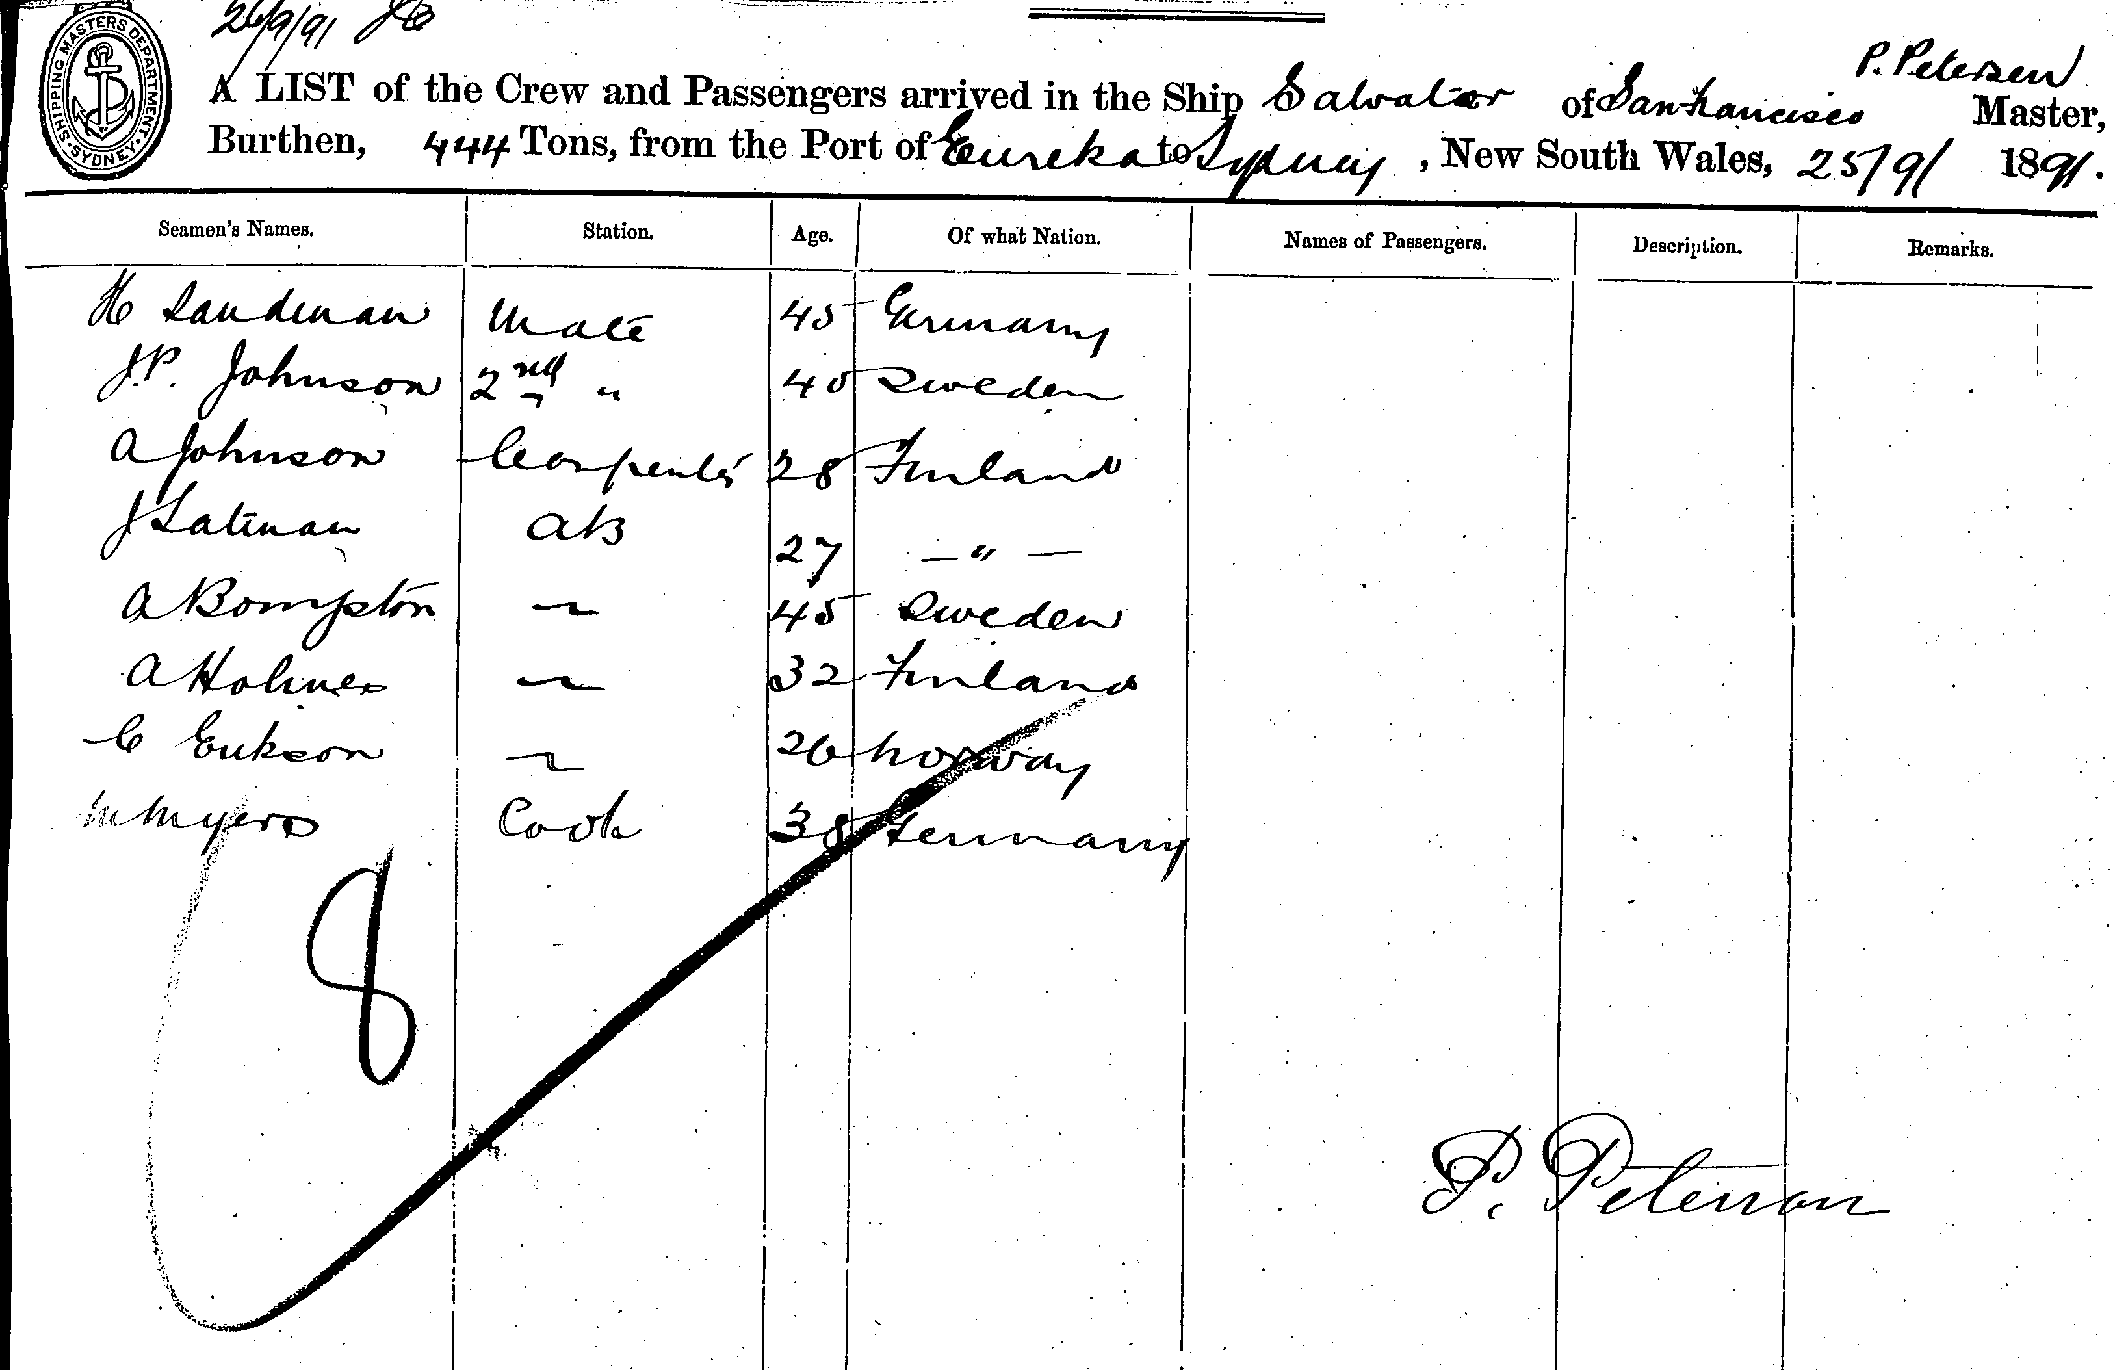 26/9/91
SHIPPING MASTERS DEPARTMENT. SYDNEY.
P. Petersen
A LIST of the Crew and Passengers arrived in the Ship Salvator of San Francisco Master,
Burthen, 444 Tons, from the Port of Eureka to Sydney, New South Wales, 25/9/ 1891.
Seamen's Names. Station. Age. Of what Nation. Names of Passengers. Description. Remarks.
H Sandman Mate 45 Germany
J.P. Johnson 2nd " 40 Sweden
A Johnson Carpenter 28 Finland
J Latinan AB 27 — " —
A Bompston ~ 45 Sweden
A Holmes ~ 32 Finland
C Erikson ~ 26 Norway
M Myers Cook 38 Germany
8
P. Peterson